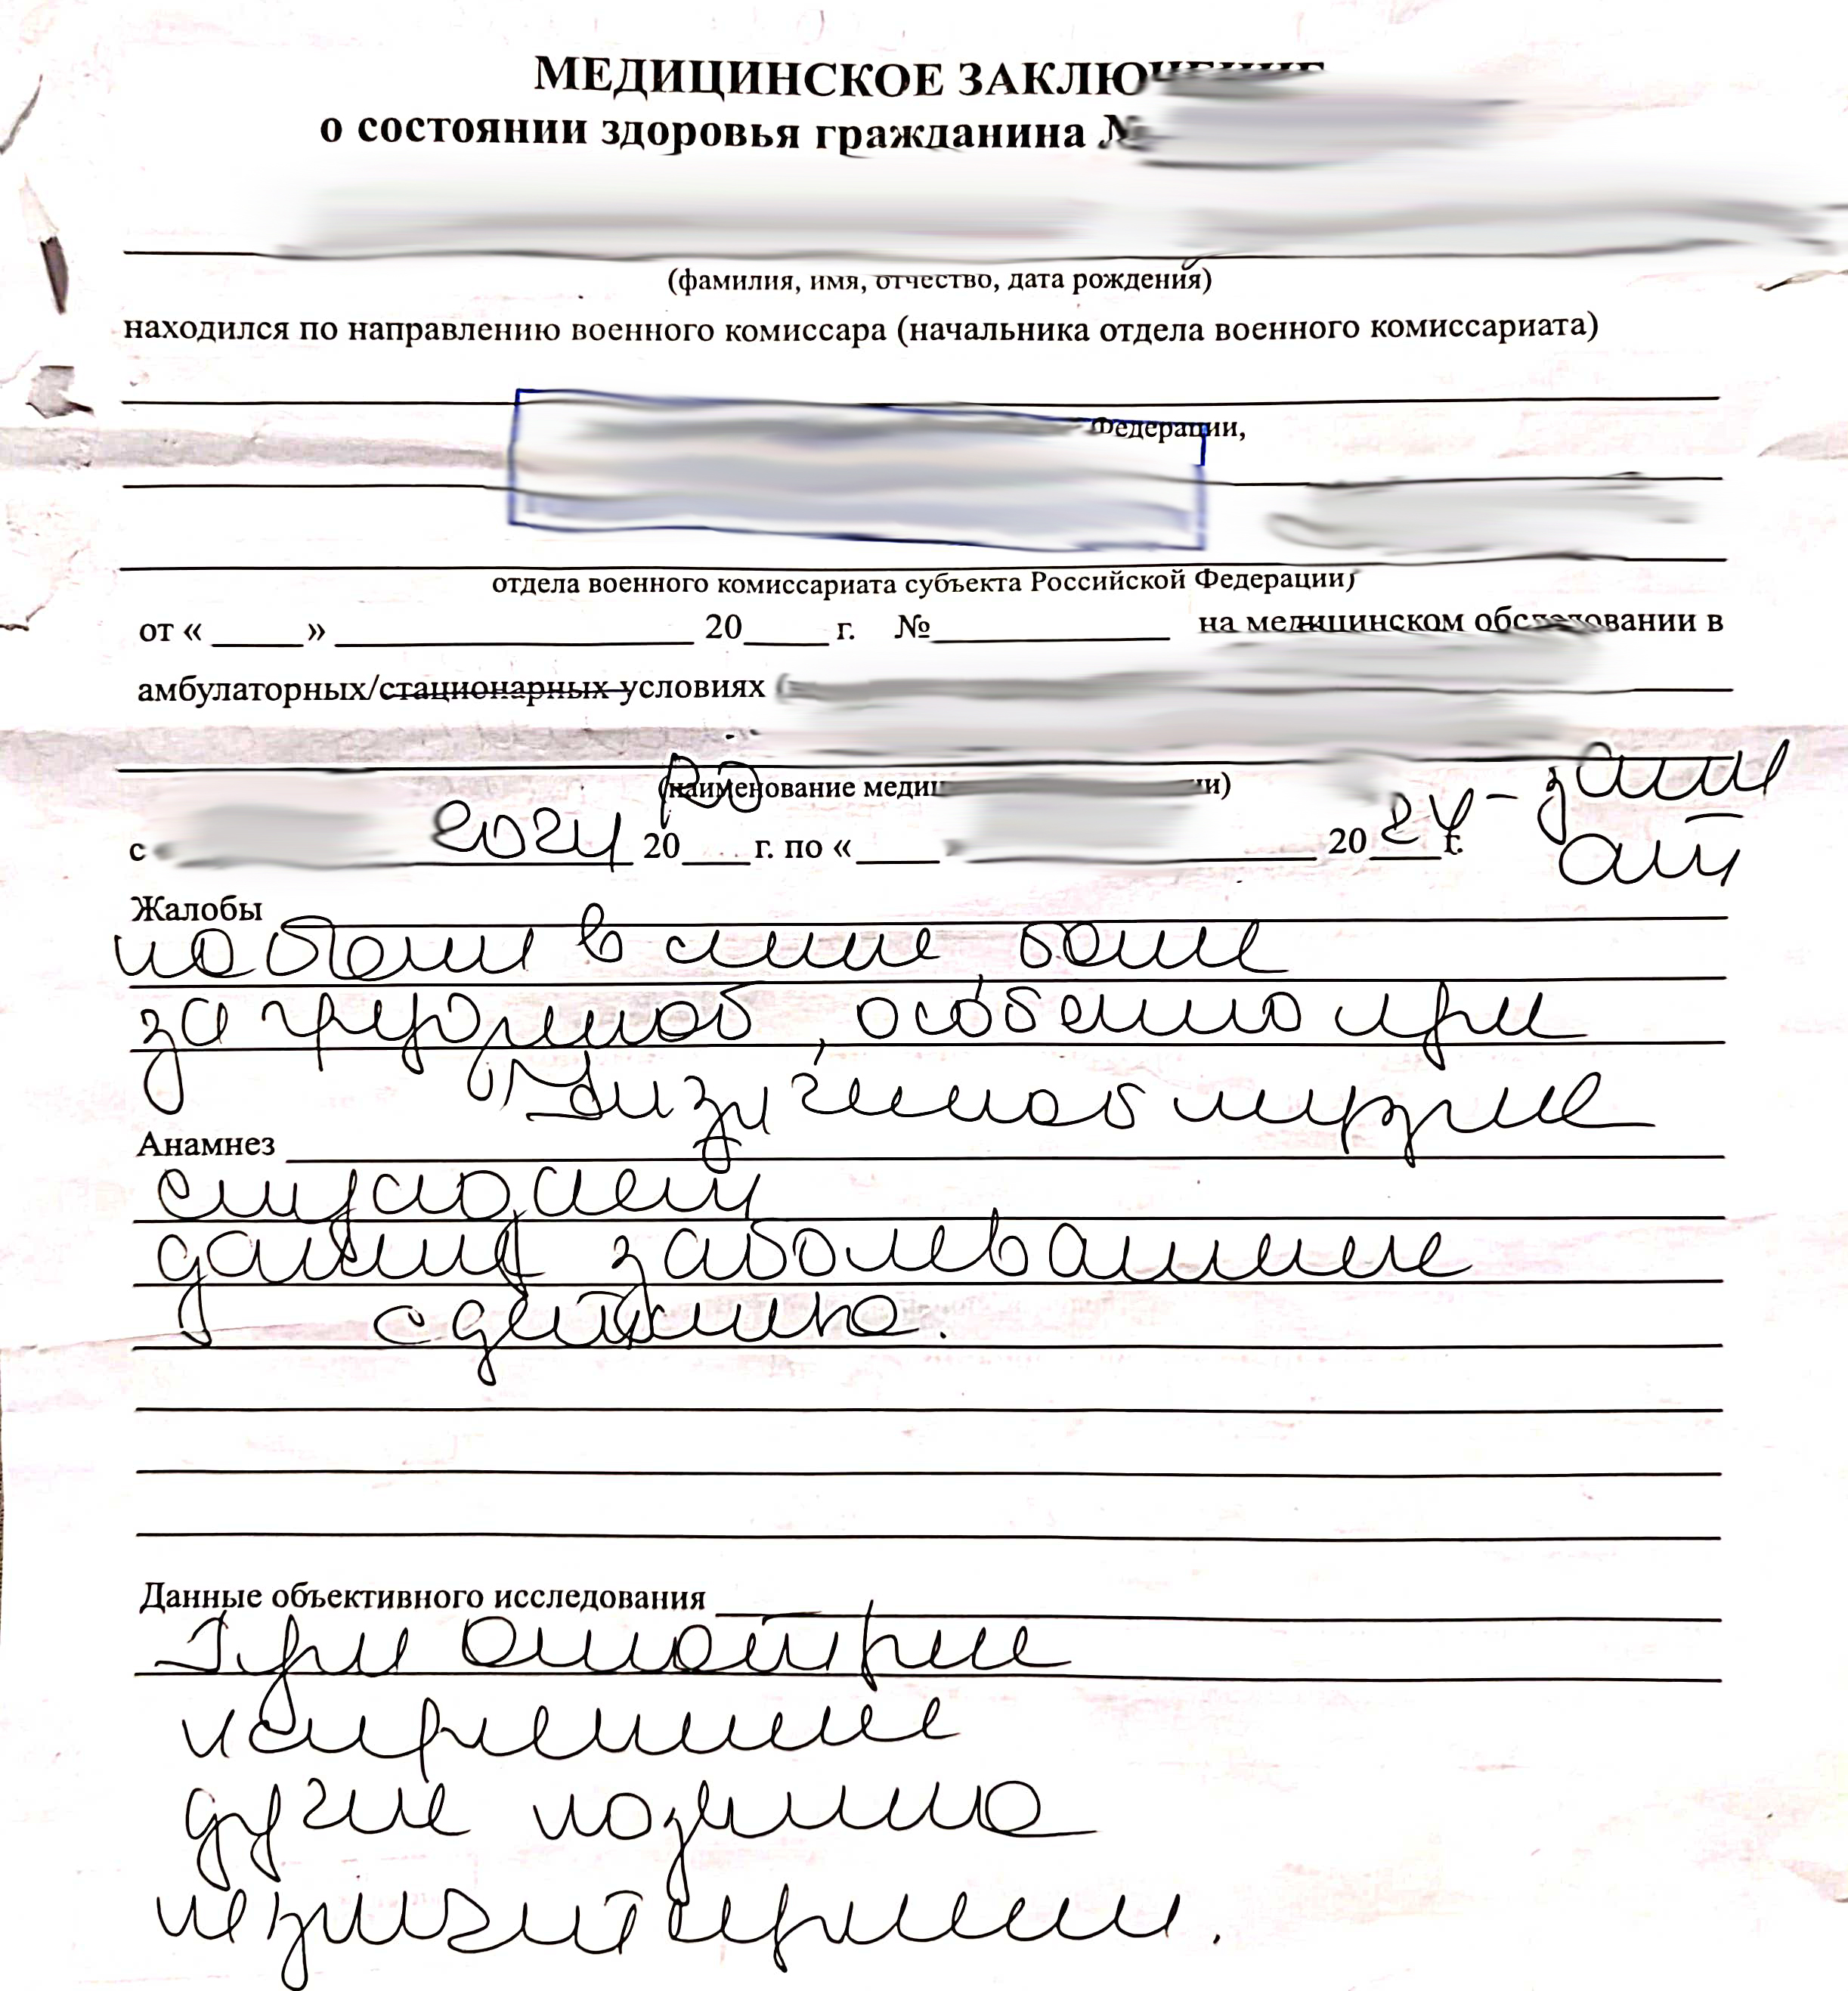 МЕДИЦИНСКОЕ ЗАКЛЮЧЕНИЕ
о состоянии здоровья гражданина №
(фамилия, имя, отчество, дата рождения)
находился по направлению военного комиссара (начальника отдела военного комиссариата)
Федерации,
отдела военного комиссариата субъекта Российской Федерации)
от « » 20 г. № на медицинском обследовании в
амбулаторных/стационарных условиях (
(наименование меди
с 2024 20 г. по « » 20 24 г.
Жалобы
на боли в спине, боли
за грудиной, особенно при
физической нагрузке
Анамнез
данное заболевание
с детства.
Данные объективного исследования
При осмотре
искривление
дуги позвоно
незначительные.